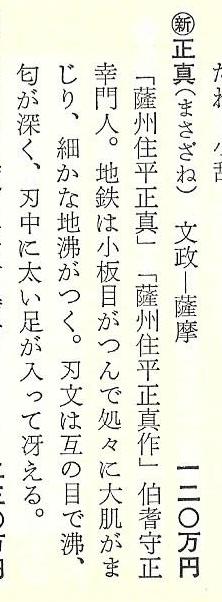 ㊟正真(まさざね) 文政—薩摩 一二〇万円
「薩州住平正真」「薩州住平正真作」伯耆守正
幸門人。地鉄は小板目がつんで処々に大肌がま
じり、細かな地沸がつく。刃文は互の目で沸、
匂が深く、刃中に太い足が入って冴える。